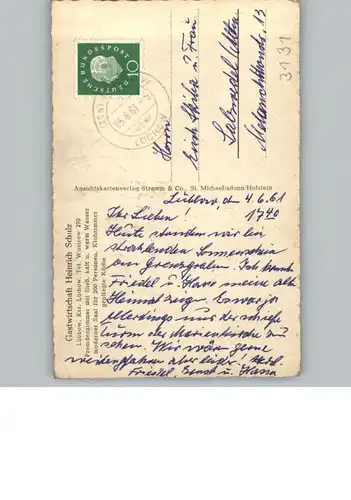 DEUTSCHE BUNDESPOST
10
Herrn
u. Frau
Salzwedel/Altm
13
3131
Ansichtskartenverlag Stramm & Co., St. Michaelisdonn/Holstein
Gastwirtschaft Heinrich Scholz
Lübbow, Krs. Lüchow, Tel. Wustrow 270
Fremdenzimmer mit fließ. kalt. u. warm Wasser
moderner Saal für 200 Personen, Klubzimmer
gepflegte Küche
Lübbow, d. 4.6.61
Ihr Lieben! 1740
Heute stunden wir bei
strahlendem Sonnenschein
am Grenzgraben. Ich konnte
Friedel u. Hans meine alte
Heimat zeigen. Es war ja
allerdings nur der schiefe
Turm der Marienkirche zu
sehen. Wir wären gerne
weitergefahren aber leider! Herzl.
Friedel, u. Hanna